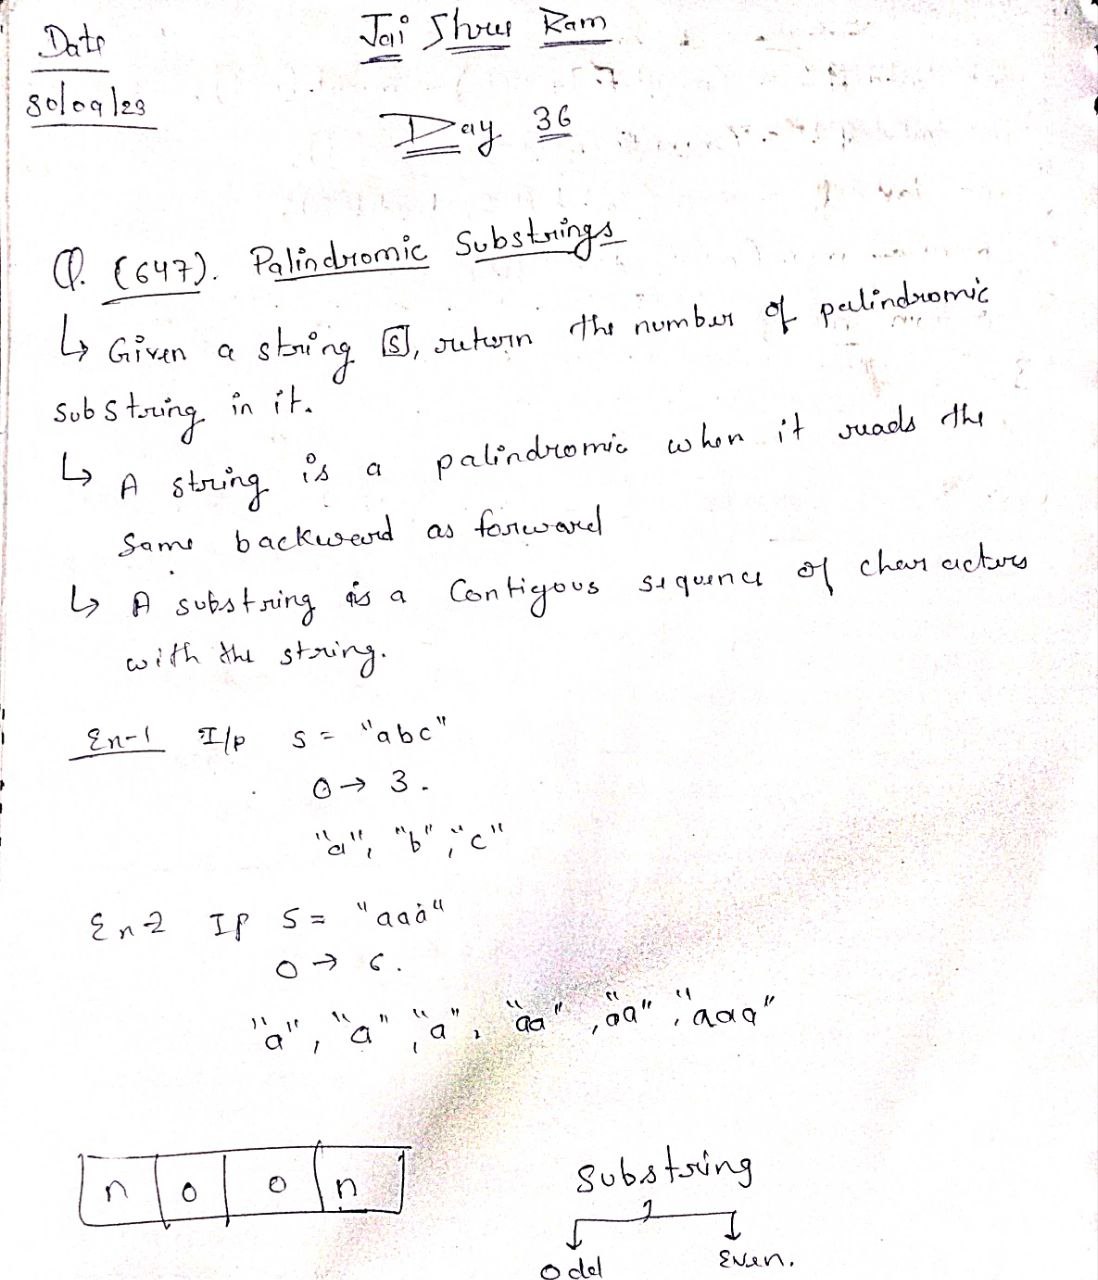 Date
Jai Shree Ram
30/09/23
Day 36
Q. (647). Palindromic Substrings
↳ Given a string [S], return the number of palindromic
substring in it.
↳ A string is a palindromic when it reads the
same backward as forward
↳ A substring is a Contigous sequence of characters
with the string.
Ex-1 I/p S = "abc"
O → 3.
"a", "b", "c"
Ex 2 Ip S = "aaa"
O → 6.
"a", "a", "a", "aa", "aa", "aaa"
n o o n
Substring
Odd Even.